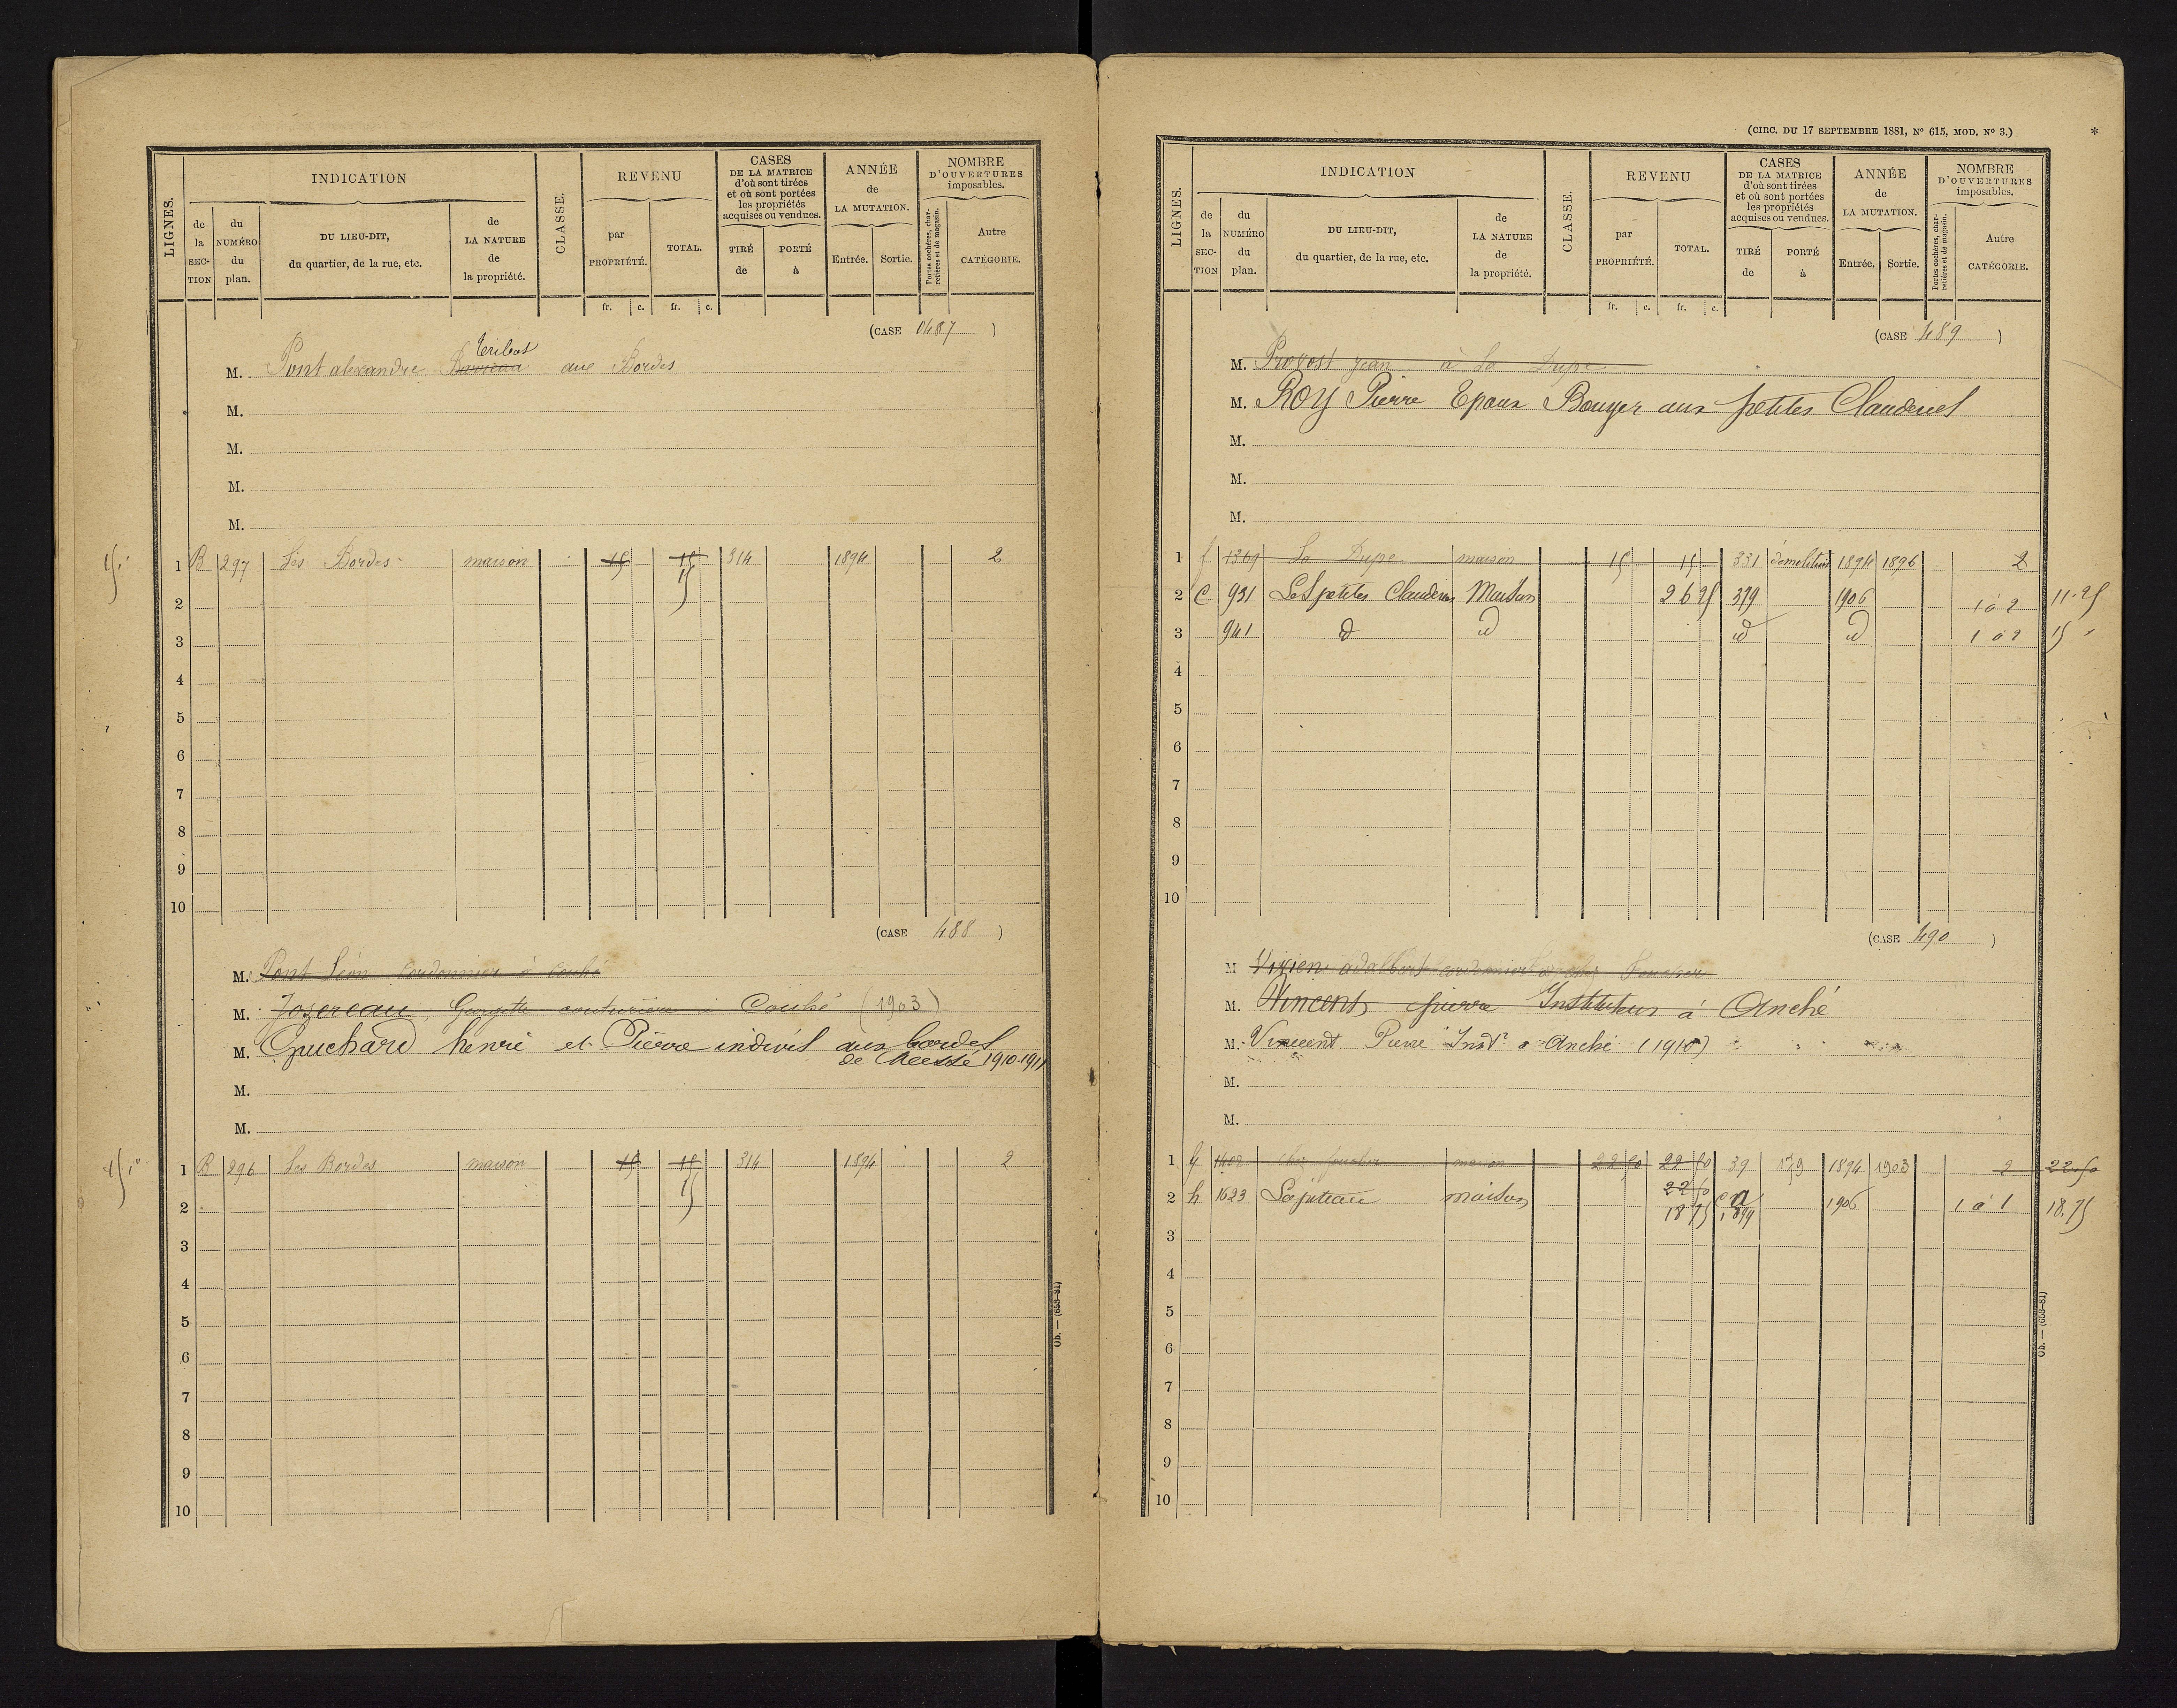 LIGNES.
INDICATION
de la SECTION
du NUMÉRO du plan.
DU LIEU-DIT, du quartier, de la rue, etc.
de LA NATURE de la propriété.
CLASSE.
REVENU
par PROPRIÉTÉ.
TOTAL.
CASES DE LA MATRICE d'où sont tirées et où sont portées les propriétés acquises ou vendues.
TIRÉ de
PORTÉ à
ANNÉE de LA MUTATION.
Entrée.
Sortie.
NOMBRE D'OUVERTURES imposables.
Portes cochères, charretières et de magasin.
Autre CATÉGORIE.
fr. c. fr. c.
(CASE 0487 )
Teribat
M. Pont alexandre aux Bordes
M.
M.
M.
M.
15
1 B 297 Les Bordes maison 15 15 314 1894 2
15
2
3
4
5
6
7
8
9
10
(CASE 488 )
M. Pont Léon Cordonnier à Couhé
M. Jozereau Georgette couturière à Couhé (1903)
M. Guichard henri et Pierre indivis aux bordes
de Ceaux 1910-1911
M.
M.
15
1 B 296 Les Bordes maison 15 15 314 1894 2
15
2
3
4
5
6
7
8
9
10
Ob. — (653-81)
(CIRC. DU 17 SEPTEMBRE 1881, N° 615, MOD. N° 3.)
*
LIGNES.
INDICATION
de la SECTION
du NUMÉRO du plan.
DU LIEU-DIT, du quartier, de la rue, etc.
de LA NATURE de la propriété.
CLASSE.
REVENU
par PROPRIÉTÉ.
TOTAL.
CASES DE LA MATRICE d'où sont tirées et où sont portées les propriétés acquises ou vendues.
TIRÉ de
PORTÉ à
ANNÉE de LA MUTATION.
Entrée.
Sortie.
NOMBRE D'OUVERTURES imposables.
Portes cochères, charretières et de magasin.
Autre CATÉGORIE.
fr. c. fr. c.
(CASE 489 )
M. Provost jean à La Dupe
M. ROY Pierre Epoux Bouyer aux petites Clauderies
M.
M.
M.
1 f 1369 La Dupe maison 15 15 331 démolition 1894 1896 2
2 C 931 Les petites Clauderies Maison 26 25 379 1906 1 à 2 11.25
3 941 d id id id 1 à 2 15
4
5
6
7
8
9
10
(CASE 490 )
M. Vivien adalbert cordonnier à chez Foucher
M. Vincent pierre Instituteur à Anché
M. Vincent Pierre Instr à Anché (1910)
M.
M.
1 G 1402 chez foucher maison 22 50 22 50 39 179 1894 1903 2 22.50
22 50
2 h 1623 Lajuteau maison 18 75 1899 1906 1 à 1 18.75
3
4
5
6
7
8
9
10
Ob. — (653-81)